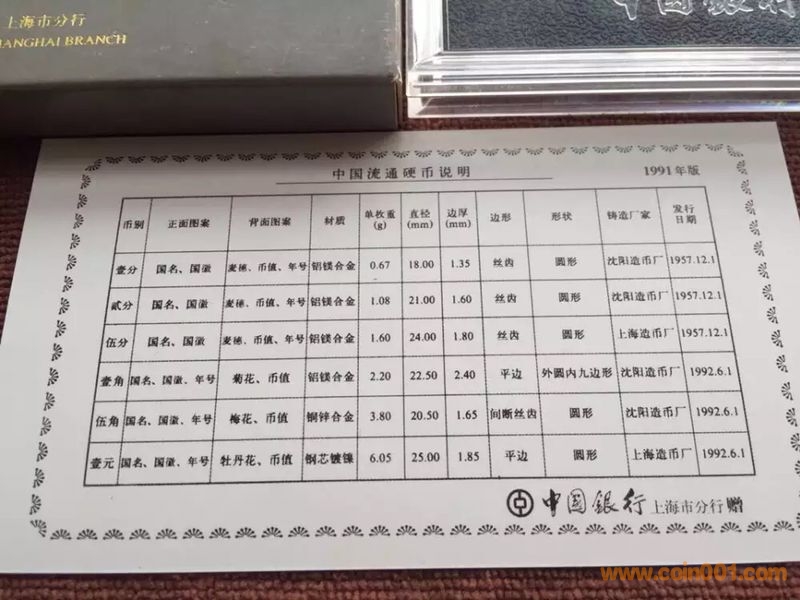 上海市分行
SHANGHAI BRANCH
中国銀行
中国流通硬币说明 1991年版
币别 正面图案 背面图案 材质 单枚重(g) 直径(mm) 边厚(mm) 边形 形状 铸造厂家 发行日期
壹分 国名、国徽 麦穗、币值、年号 铝镁合金 0.67 18.00 1.35 丝齿 圆形 沈阳造币厂 1957.12.1
贰分 国名、国徽 麦穗、币值、年号 铝镁合金 1.08 21.00 1.60 丝齿 圆形 沈阳造币厂 1957.12.1
伍分 国名、国徽 麦穗、币值、年号 铝镁合金 1.60 24.00 1.80 丝齿 圆形 上海造币厂 1957.12.1
壹角 国名、国徽、年号 菊花、币值 铝镁合金 2.20 22.50 2.40 平边 外圆内九边形 沈阳造币厂 1992.6.1
伍角 国名、国徽、年号 梅花、币值 铜锌合金 3.80 20.50 1.65 间断丝齿 圆形 沈阳造币厂 1992.6.1
壹元 国名、国徽、年号 牡丹花、币值 钢芯镀镍 6.05 25.00 1.85 平边 圆形 上海造币厂 1992.6.1
中国銀行 上海市分行赠
www.coin001.com